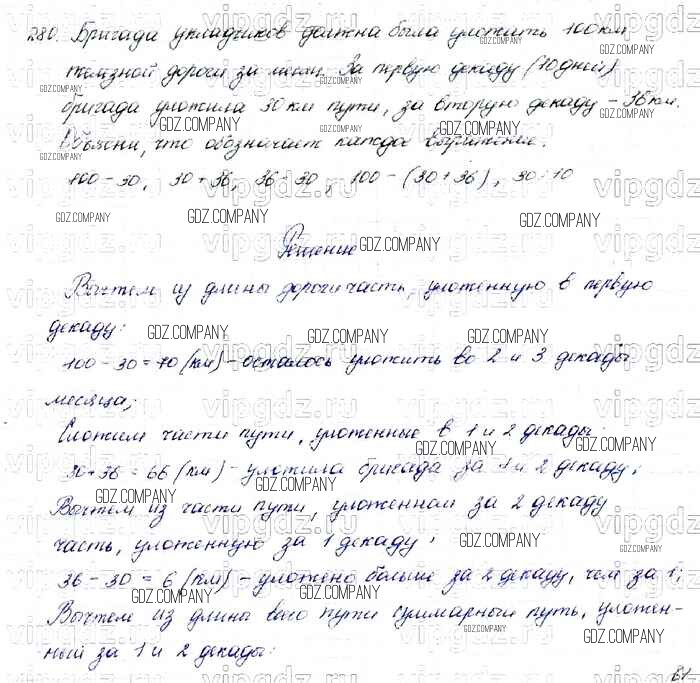 280. Бригада укладчиков должна была уложить 100 км
железной дороги за месяц. За первую декаду (10 дней)
бригада уложила 30 км пути, за вторую декаду - 36 км.
Объясни, что обозначает каждое выражение.
100 - 30, 30 + 36, 36 - 30, 100 - (30 + 36), 30 : 10
Решение
Вычтем из длины дороги часть, уложенную в первую
декаду:
100 - 30 = 70 (км) - осталось уложить во 2 и 3 декады
месяца;
Сложим части пути, уложенные в 1 и 2 декады:
30 + 36 = 66 (км) - уложила бригада за 1 и 2 декаду;
Вычтем из части пути, уложенной за 2 декаду
часть, уложенную за 1 декаду:
36 - 30 = 6 (км) - уложено больше за 2 декаду, чем за 1;
Вычтем из длины всего пути суммарный путь, уложен-
ный за 1 и 2 декады:
GDZ.COMPANY
vipgdz.ru